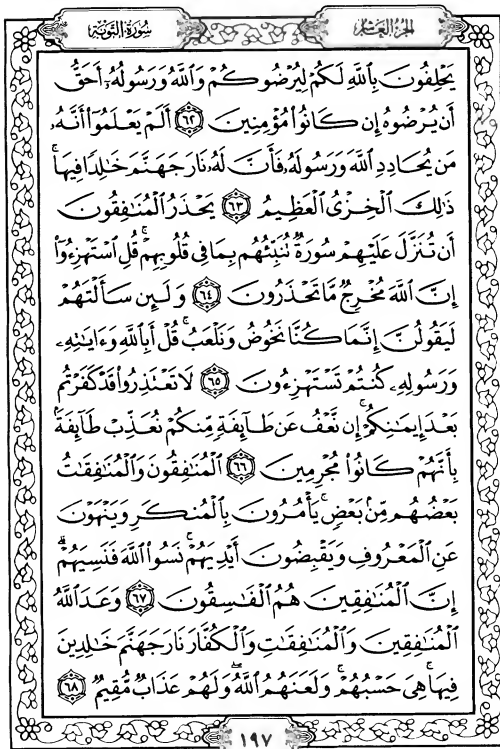 الجزء العاشر
سورة التوبة
يَحْلِفُونَ بِٱللَّهِ لَكُمْ لِيُرْضُوكُمْ وَٱللَّهُ وَرَسُولُهُۥٓ أَحَقُّ
أَن يُرْضُوهُ إِن كَانُوا۟ مُؤْمِنِينَ ٦٢ أَلَمْ يَعْلَمُوٓا۟ أَنَّهُۥ
مَن يُحَادِدِ ٱللَّهَ وَرَسُولَهُۥ فَأَنَّ لَهُۥ نَارَ جَهَنَّمَ خَٰلِدًا فِيهَاۚ
ذَٰلِكَ ٱلْخِزْىُ ٱلْعَظِيمُ ٦٣ يَحْذَرُ ٱلْمُنَٰفِقُونَ
أَن تُنَزَّلَ عَلَيْهِمْ سُورَةٌ تُنَبِّئُهُم بِمَا فِى قُلُوبِهِمْۚ قُلِ ٱسْتَهْزِءُوٓا۟
إِنَّ ٱللَّهَ مُخْرِجٌ مَّا تَحْذَرُونَ ٦٤ وَلَئِن سَأَلْتَهُمْ
لَيَقُولُنَّ إِنَّمَا كُنَّا نَخُوضُ وَنَلْعَبُۚ قُلْ أَبِٱللَّهِ وَءَايَٰتِهِۦ
وَرَسُولِهِۦ كُنتُمْ تَسْتَهْزِءُونَ ٦٥ لَا تَعْتَذِرُوا۟ قَدْ كَفَرْتُم
بَعْدَ إِيمَٰنِكُمْۚ إِن نَّعْفُ عَن طَآئِفَةٍ مِّنكُمْ نُعَذِّبْ طَآئِفَةًۢ
بِأَنَّهُمْ كَانُوا۟ مُجْرِمِينَ ٦٦ ٱلْمُنَٰفِقُونَ وَٱلْمُنَٰفِقَٰتُ
بَعْضُهُم مِّنۢ بَعْضٍۚ يَأْمُرُونَ بِٱلْمُنكَرِ وَيَنْهَوْنَ
عَنِ ٱلْمَعْرُوفِ وَيَقْبِضُونَ أَيْدِيَهُمْۚ نَسُوا۟ ٱللَّهَ فَنَسِيَهُمْۗ
إِنَّ ٱلْمُنَٰفِقِينَ هُمُ ٱلْفَٰسِقُونَ ٦٧ وَعَدَ ٱللَّهُ
ٱلْمُنَٰفِقِينَ وَٱلْمُنَٰفِقَٰتِ وَٱلْكُفَّارَ نَارَ جَهَنَّمَ خَٰلِدِينَ
فِيهَاۚ هِىَ حَسْبُهُمْۚ وَلَعَنَهُمُ ٱللَّهُۖ وَلَهُمْ عَذَابٌ مُّقِيمٌ ٦٨
١٩٧